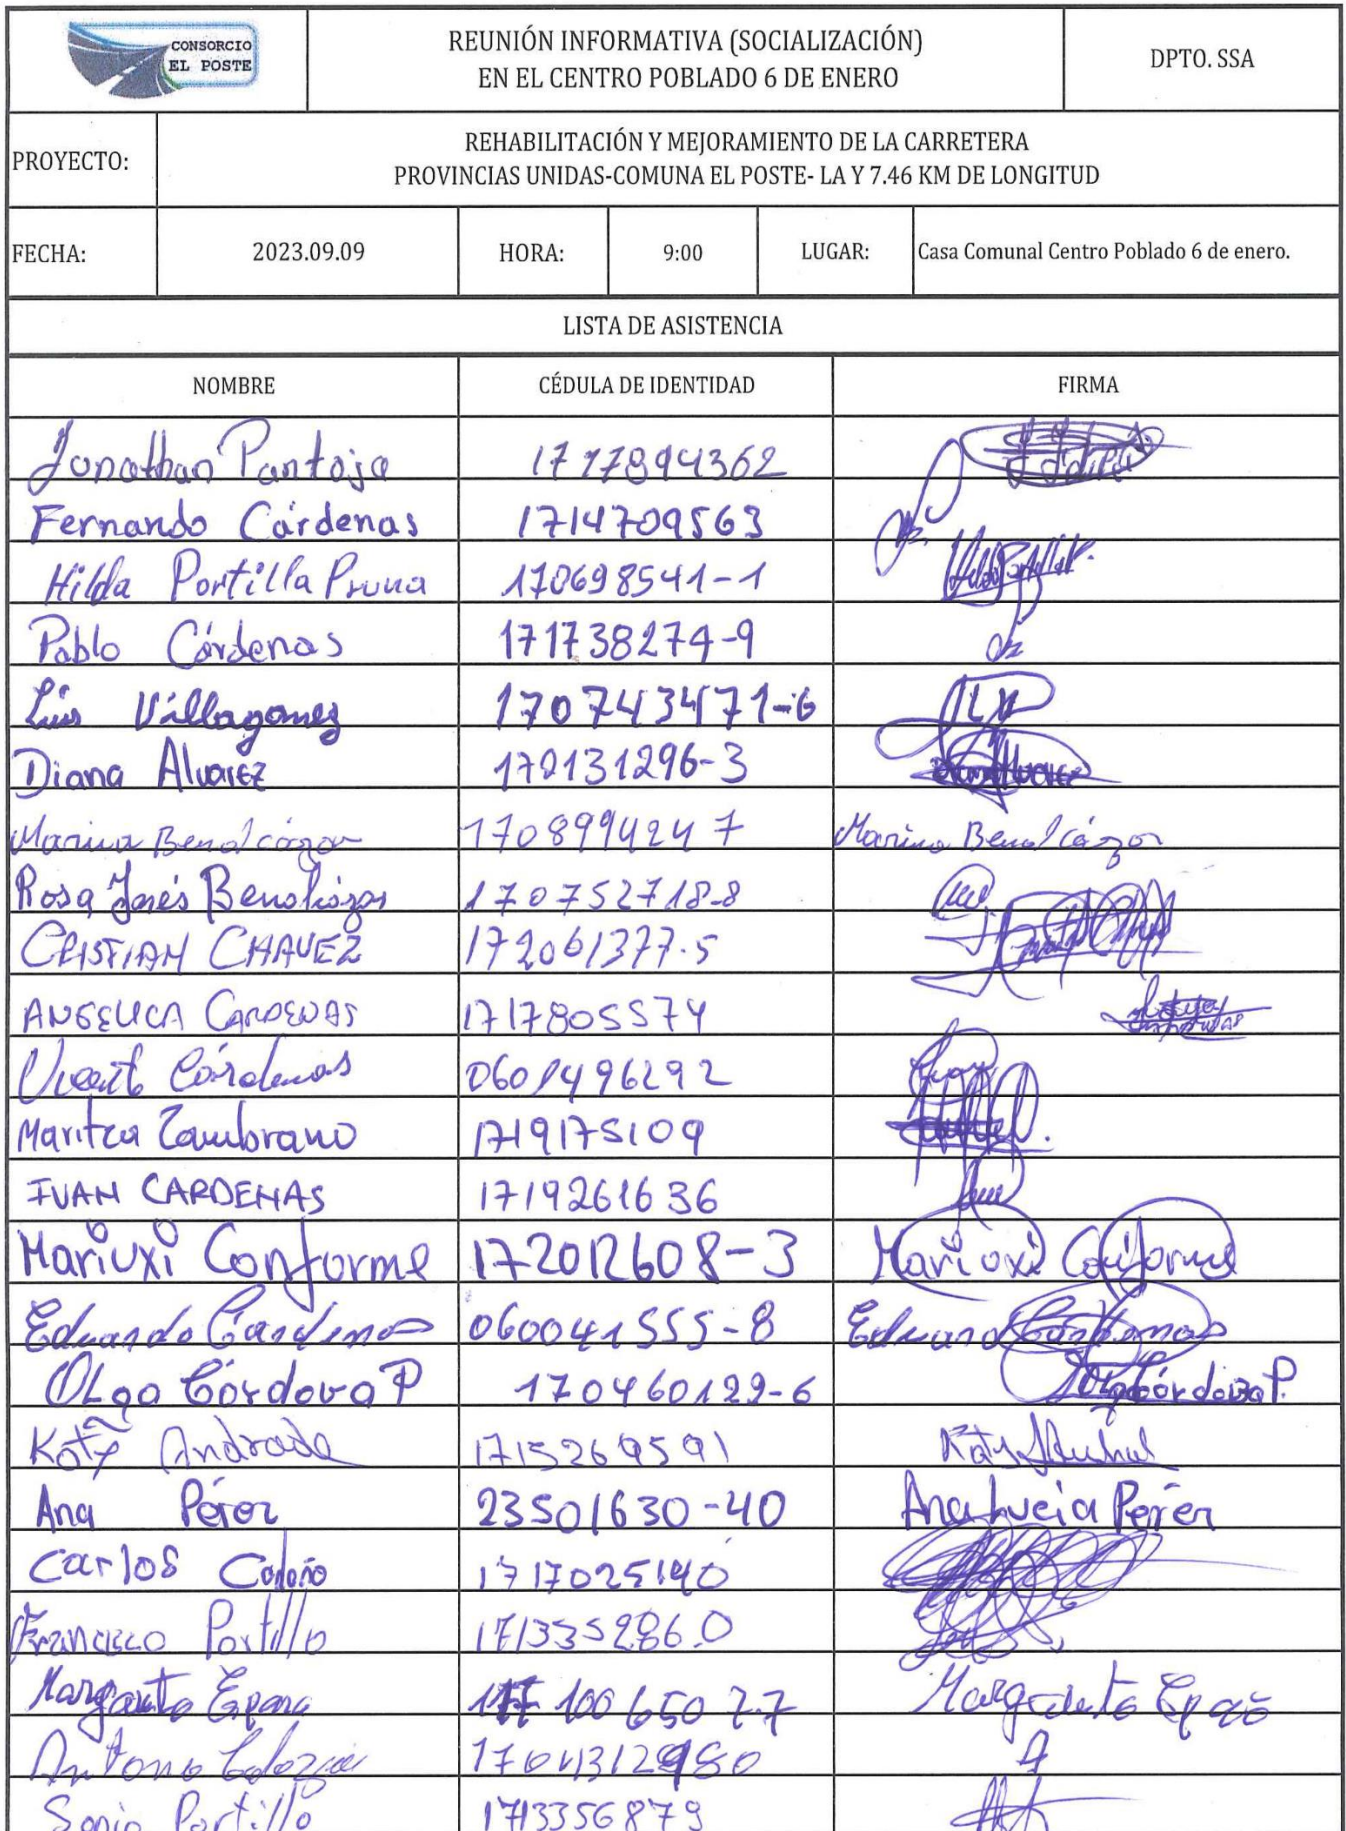 CONSORCIO
EL POSTE
REUNIÓN INFORMATIVA (SOCIALIZACIÓN)
EN EL CENTRO POBLADO 6 DE ENERO
DPTO. SSA
PROYECTO:
REHABILITACIÓN Y MEJORAMIENTO DE LA CARRETERA
PROVINCIAS UNIDAS-COMUNA EL POSTE- LA Y 7.46 KM DE LONGITUD
FECHA: 2023.09.09 HORA: 9:00 LUGAR: Casa Comunal Centro Poblado 6 de enero.
LISTA DE ASISTENCIA
NOMBRE CÉDULA DE IDENTIDAD FIRMA
Jonathan Pantoja 1717894362
Fernando Cárdenas 1714709563
Hilda Portilla Pruna 170698541-1
Pablo Cárdenas 171738274-9
Luis Villagomez
Diana Alvarez 172131296-3
Marina Benalcázar 1708994247 Marina Benalcázar
Rosa Inés Benalcázar 170752718-8
CRISTIAN CHAVEZ 172061377-5
ANGELICA CARDENAS 1717805574
Vicente Cárdenas 0601496292
Maritza Zambrano 1719175109
IVAN CARDENAS 1719261636
Mariuxi Conforme 172012608-3 Mariuxi Conforme
Eduardo Cardenas 060041555-8 Eduardo Cardenas
OLga Córdova P 170460129-6 Olga Córdova P.
Katy Andrade 1715269591 Katy
Ana Pérez 23501630-40 Ana Lucia Perez
Carlos 1717025140
Francisco Portillo 171335286.0
Margarita 100650 7-7 Margarita
Antonio
Sonia Portillo 1713356879